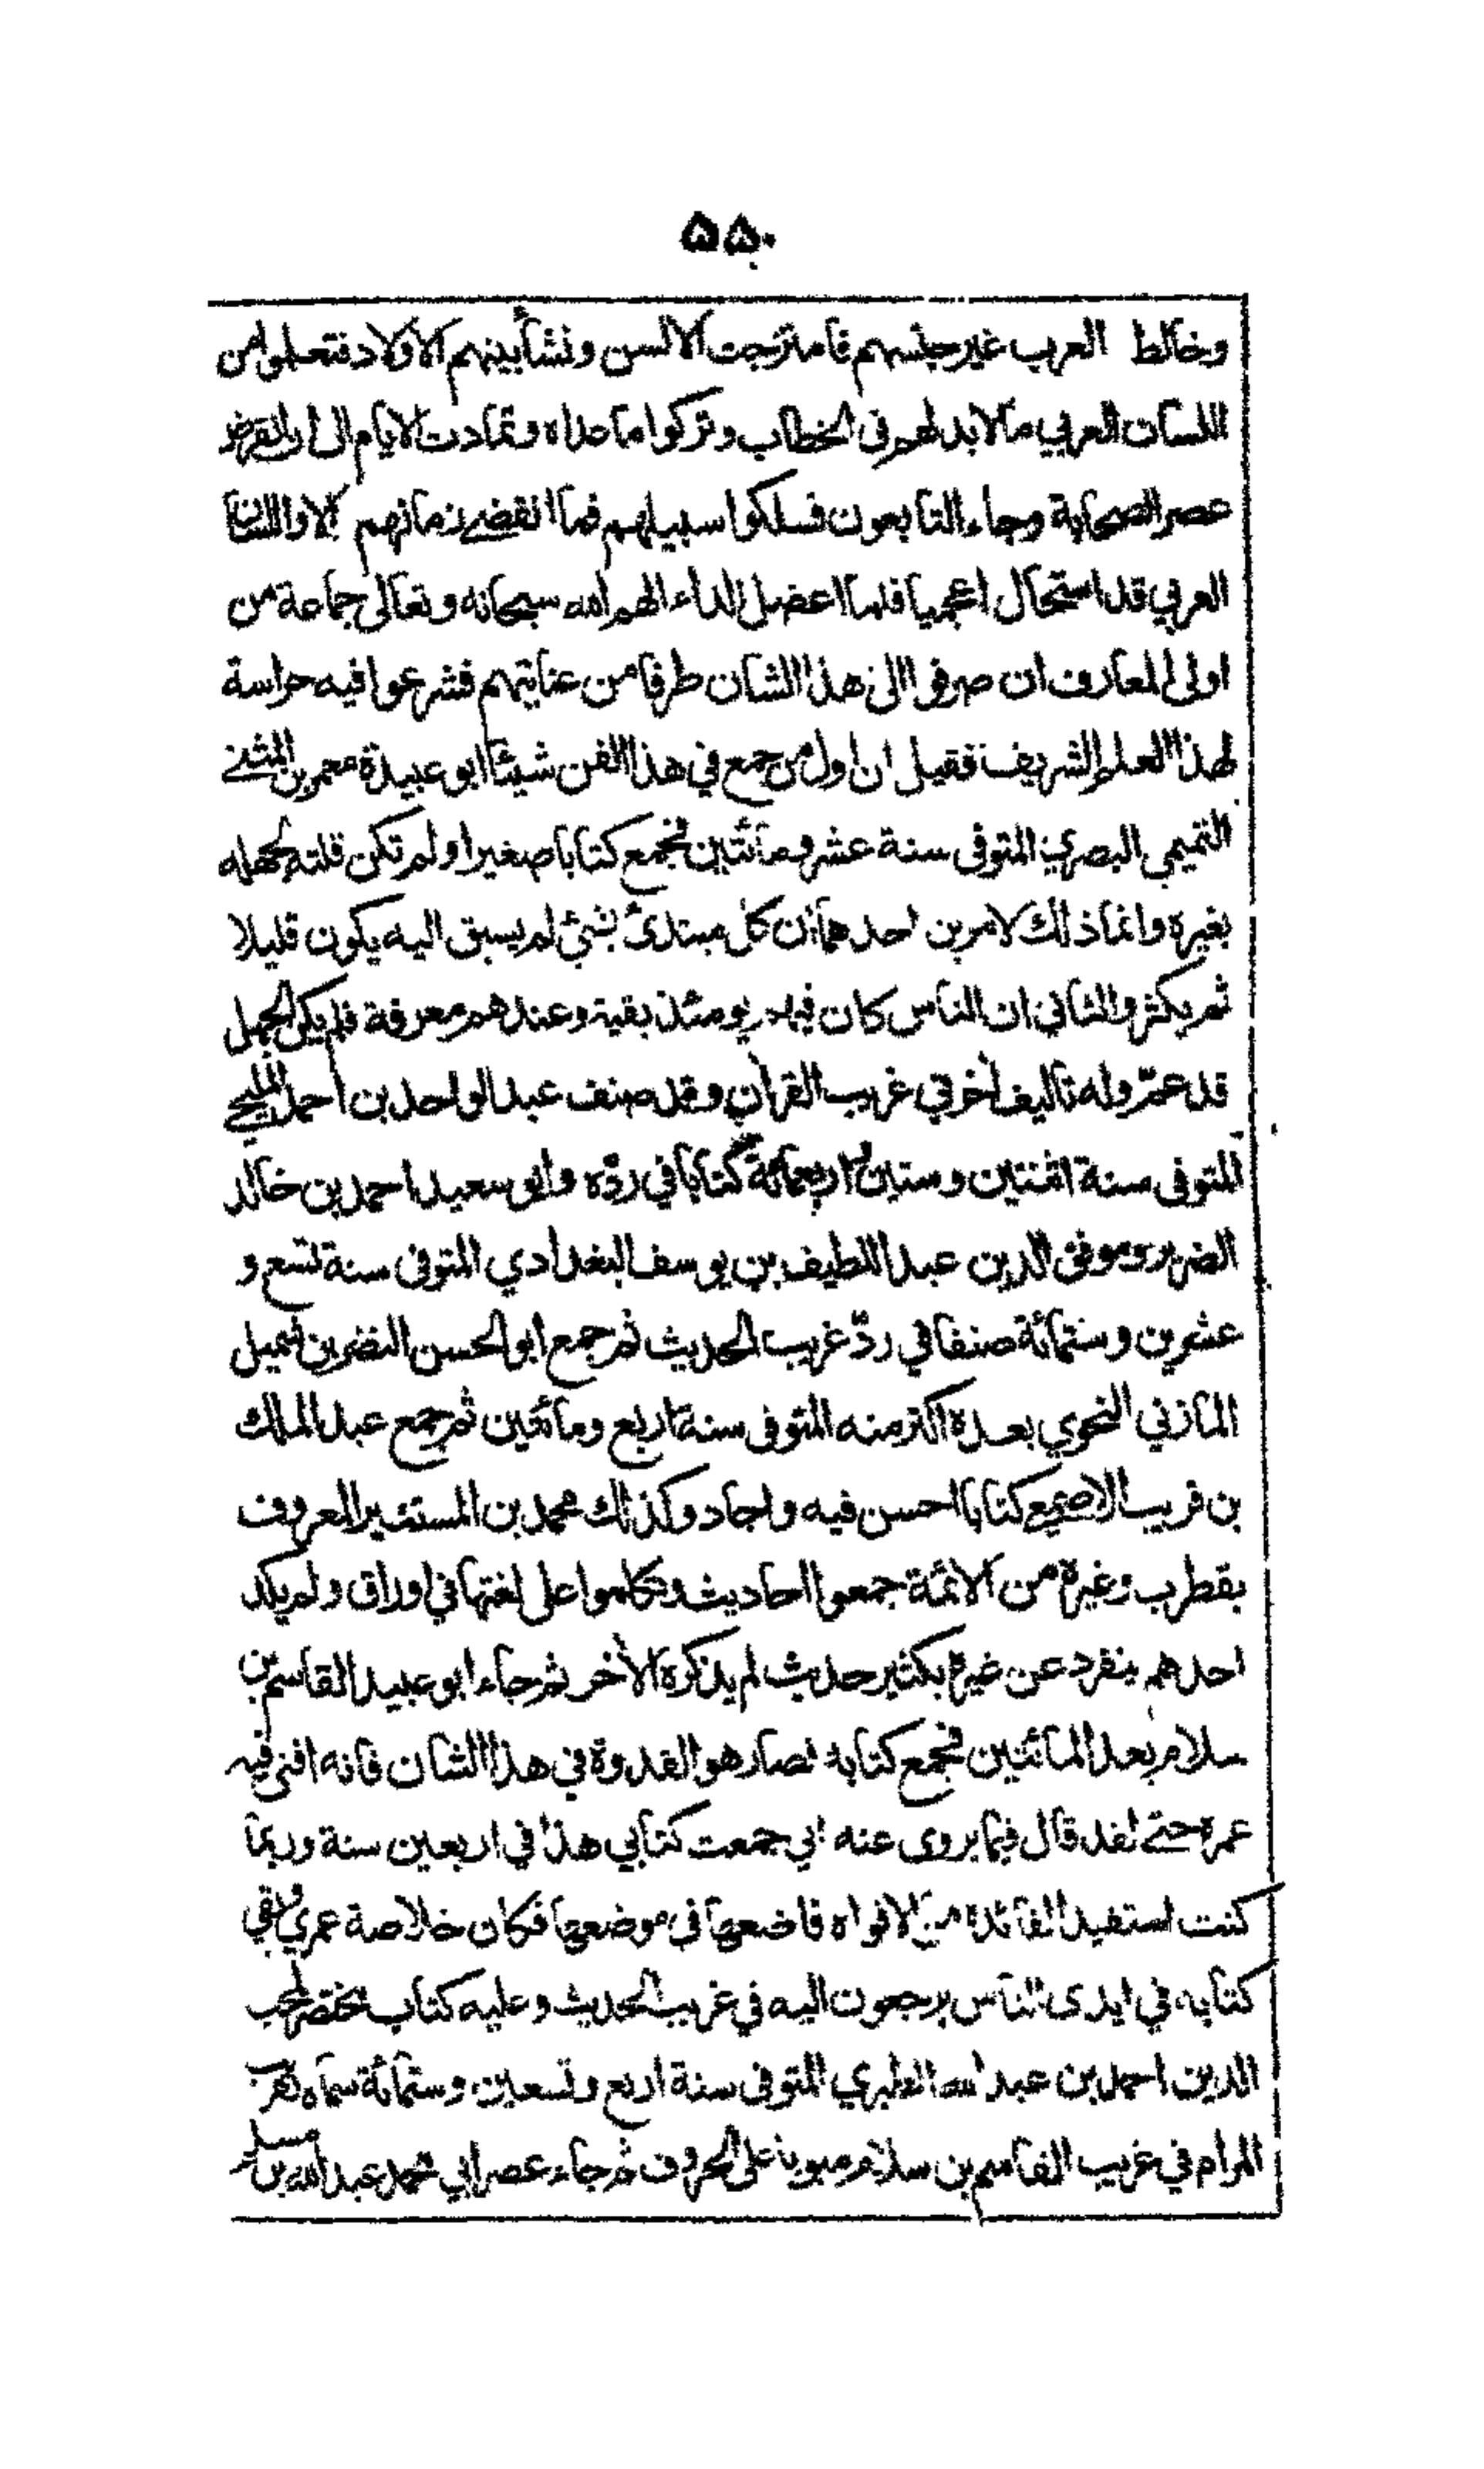 ٥٥٠
وخالط العرب غير جنسهم فامتزجت الالسن ونشأ بينهم الاولاد فتعلموا من
اللسان العربي ما لابد لهم في الخطاب وتركوا ما عداه وتمادت الايام الى ان انقرض
عصر الصحابة وجاء التابعون فسلكوا سبيلهم فما انقضى زمانهم الا واللسان
العربي قد استحال اعجميا فلما اعضل الداء الهم الله سبحانه وتعالى جماعة من
اولى المعارف ان صرفوا الى هذا الشان طرفا من عنايتهم فشرعوا فيه حراسة
لهذا العلم الشريف فقيل ان اول من جمع في هذا الفن شيئا ابو عبيدة معمر بن المثنى
التميمي البصري المتوفى سنة عشر ومائتين فجمع كتابا صغيرا ولم تكن قلته لجهله
بغيره وانما ذلك لامرين احدهما ان كل مبتدئ بشئ لم يسبق اليه يكون قليلا
ثم يكثر والثاني ان الناس كان فيهم يومئذ بقية وعندهم معرفة فلم يكن الجهل
قد عمّ وله تاليف أخر في غريب القرأن وقد صنف عبد الواحد بن احمد المليحي
المتوفى سنة اثنتين وستين واربعمائة كتابا في ردّه وابو سعيد احمد بن خالد
الضرير وموفق الدين عبد اللطيف بن يوسف البغدادي المتوفى سنة تسع و
عشرين وستمائة صنفا في ردّ غريب الحديث ثم جمع ابو الحسن النضر بن شميل
المازني النحوي بعده اكثر منه المتوفى سنة اربع ومائتين ثم جمع عبد الملك
بن قريب الاصمعي كتابا احسن فيه واجاد وكذلك محمد بن المستنير المعروف
بقطرب وغيره من الائمة جمعوا احاديث وتكلموا على لغتها في اوراق ولم يكد
احدهم ينفرد عن غيره بكثير حديث لم يذكره الأخر ثم جاء ابو عبيد القاسم بن
سلام بعد المائتين فجمع كتابه فصار هو القدوة في هذا الشان فانه افنى فيه
عمره حتى لقد قال فيما يروى عنه اني جمعت كتابي هذا في اربعين سنة وربما
كنت استفيد الفائدة من الافواه فاضعها في موضعها فكان خلاصة عمري وبقي
كتابه في ايدى الناس يرجعون اليه في غريب الحديث وعليه كتاب مختصر لمحب
الدين احمد بن عبد الله الطبري المتوفى سنة اربع وتسعين وستمائة سماه تقريب
المرام في غريب القاسم بن سلام مبوبا على الحروف ثم جاء عصر ابي محمد عبد الله بن مسلم